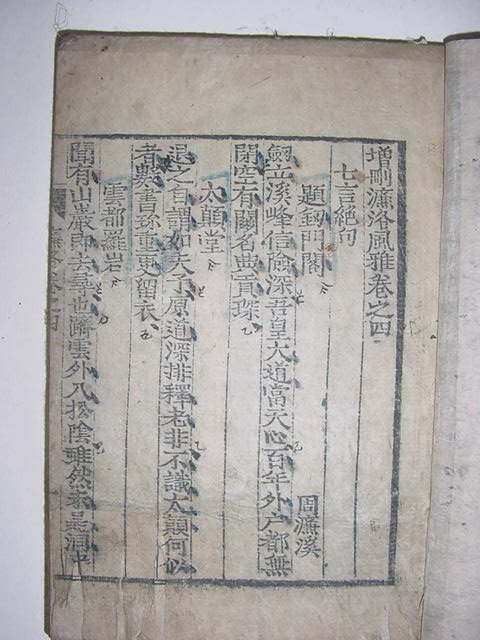 增刪濂洛風雅卷之四
七言絕句
題劒門閣 周濂溪
劒立溪峰信險深吾皇大道當天心百年外户都無
閉空有關名點貢琛
太顚堂
退之自謂如夫子原道深排釋老非不識太顚何似
者數書珍重更留衣
雲都羅岩
聞有山巖即去尋亦躋雲外入松陰雖然未是洞中